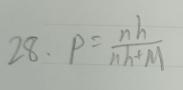 28. P = nh / nh+M